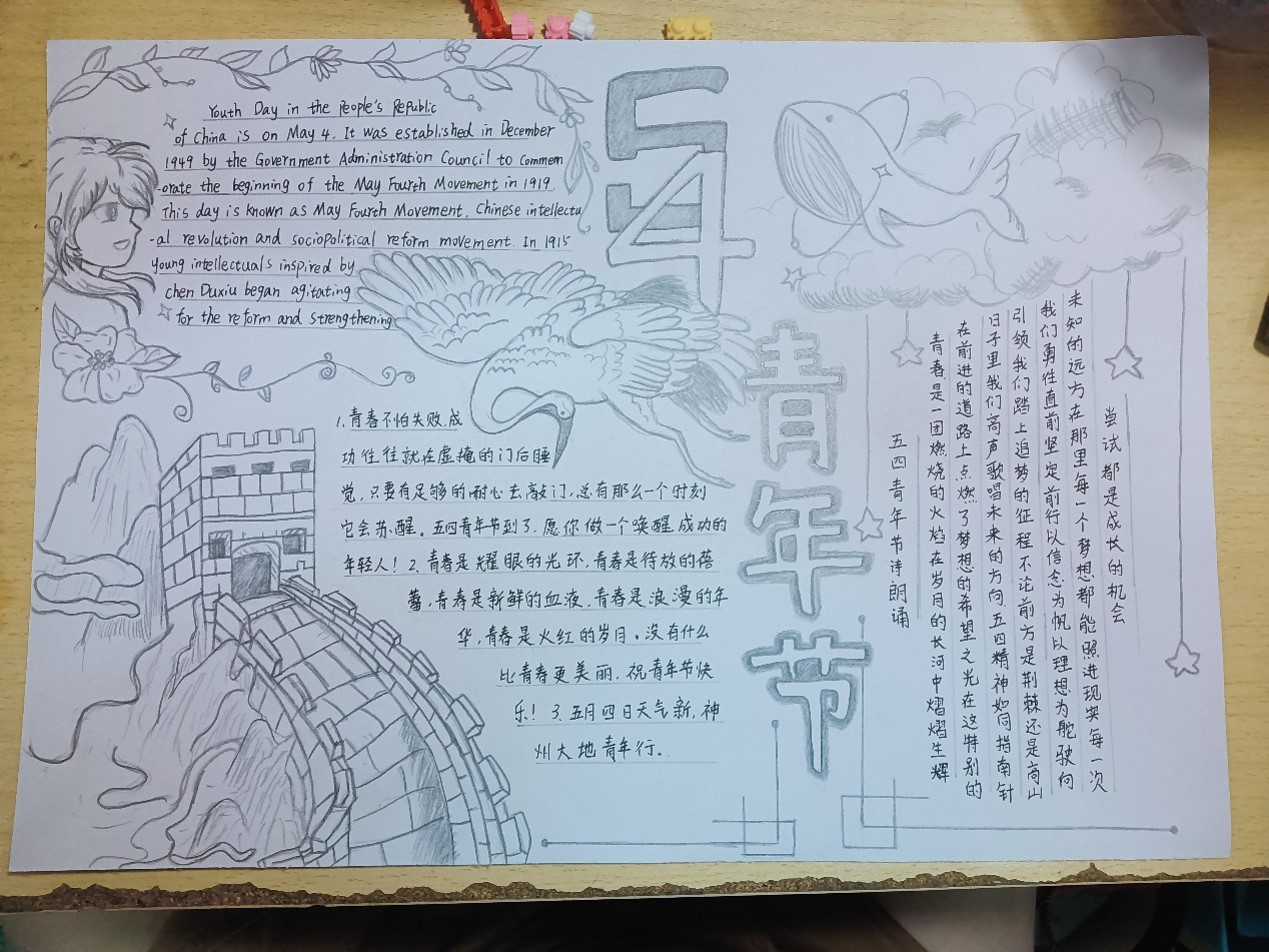 Youth Day in the People's Republic
of China is on May 4. It was established in December
1949 by the Government Administration Council to Commem
-orate the beginning of the May Fourth Movement in 1919.
This day is known as May Fourth Movement. Chinese intellectu
-al revolution and sociopolitical reform movement. In 1915
young intellectuals inspired by
chen Duxiu began agitating
for the reform and strengthening
54
青年节
1.青春不怕失败,成
功往往就在虚掩的门后睡
觉,只要有足够的耐心去敲门,总有那么一个时刻
它会苏醒。五四青年节到了,愿你做一个唤醒成功的
年轻人!2.青春是耀眼的光环,青春是待放的蓓
蕾,青春是新鲜的血液,青春是浪漫的年
华,青春是火红的岁月。没有什么
比青春更美丽,祝青年节快
乐!3.五月四日天气新,神
州大地青年行。
五四青年节诗朗诵
青春是一团燃烧的火焰在岁月的长河中熠熠生辉
在前进的道路上点燃了梦想的希望之光在这特别的
日子里我们高声歌唱未来的方向五四精神如同指南针
引领我们踏上追梦的征程不论前方是荆棘还是高山
我们勇往直前坚定前行以信念为帆以理想为舵驶向
未知的远方在那里每一个梦想都能照进现实每一次
尝试都是成长的机会